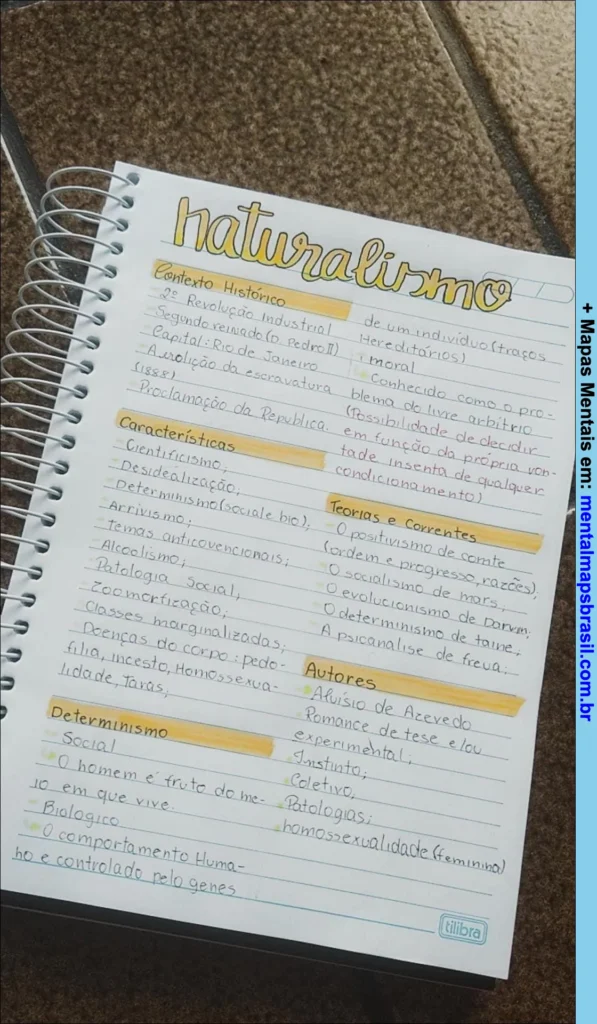 naturalismo
Contexto Histórico
2ª Revolução Industrial
Segundo reinado (D. Pedro II)
Capital: Rio de Janeiro
A abolição da escravatura
(1888)
Proclamação da República.
Características
Cientificismo;
Desidealização;
Determinismo (social e bio);
Arrivismo;
Temas anticovencionais;
Alcoolismo;
Patologia Social;
Zoomorfização;
Classes marginalizadas;
Doenças do corpo: pedo-
filia, incesto, Homossexua-
lidade, Taras;
Determinismo
Social
O homem é fruto do me-
io em que vive.
Biologico
O comportamento Huma-
no e controlado pelo genes
de um indivíduo (traços
Hereditários)
moral
Conhecido como o pro-
blema do livre arbítrio
(Possibilidade de decidir
em função da própria von-
tade insenta de qualquer
condicionamento)
Teorias e Correntes
O positivismo de comte
(ordem e progresso, razões);
O socialismo de mars;
O evolucionismo de Darwin;
O determinismo de taine;
A psicanálise de freua;
Autores
Aluísio de Azevedo
Romance de tese e/ou
experimental;
Instinto;
Coletivo;
Patologias;
homossexualidade (feminina)
tilibra
+ Mapas Mentais em: mentalmapsbrasil.com.br